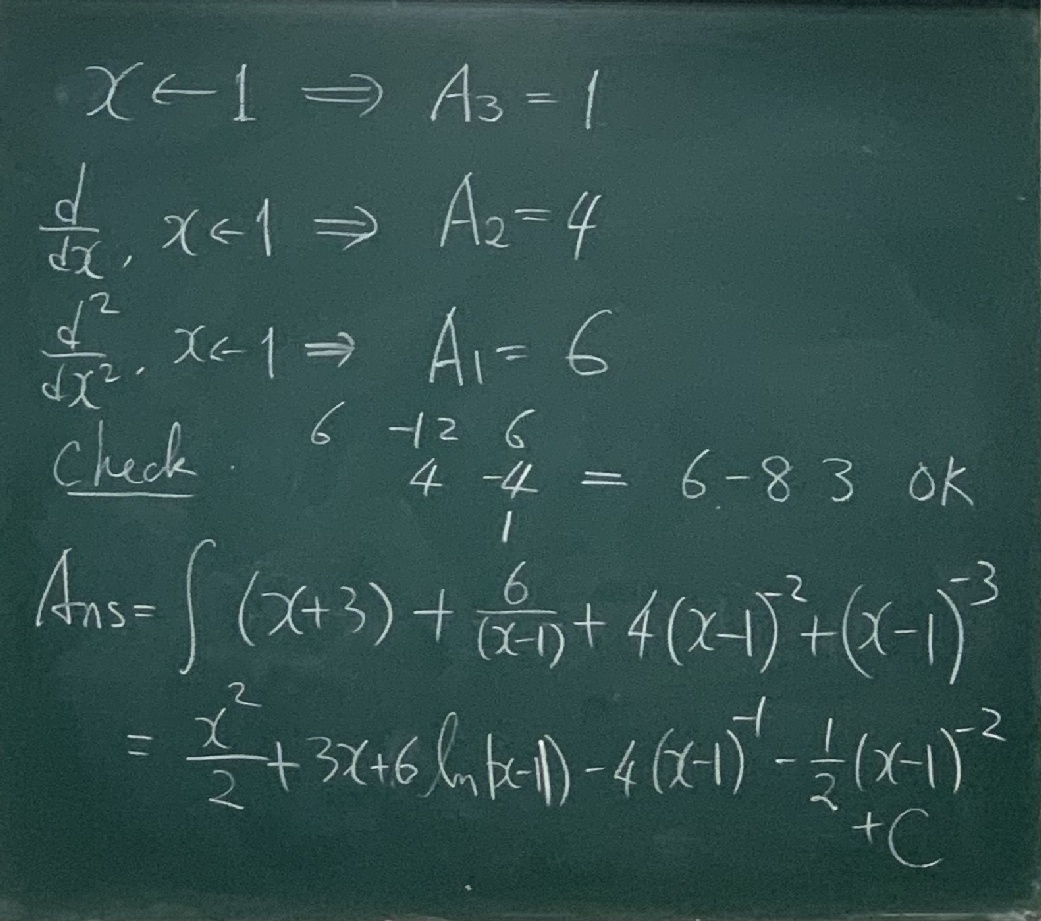 x ← 1 ⇒ A₃ = 1
d/dx, x ← 1 ⇒ A₂ = 4
d²/dx², x ← 1 ⇒ A₁ = 6
6 -12 6
Check. 4 -4 = 6 -8 3 OK
1
Ans = ∫ (x+3) + 6/(x-1) + 4(x-1)⁻² + (x-1)⁻³
= x²/2 + 3x + 6 ln(|x-1|) - 4(x-1)⁻¹ - 1/2 (x-1)⁻²
+C